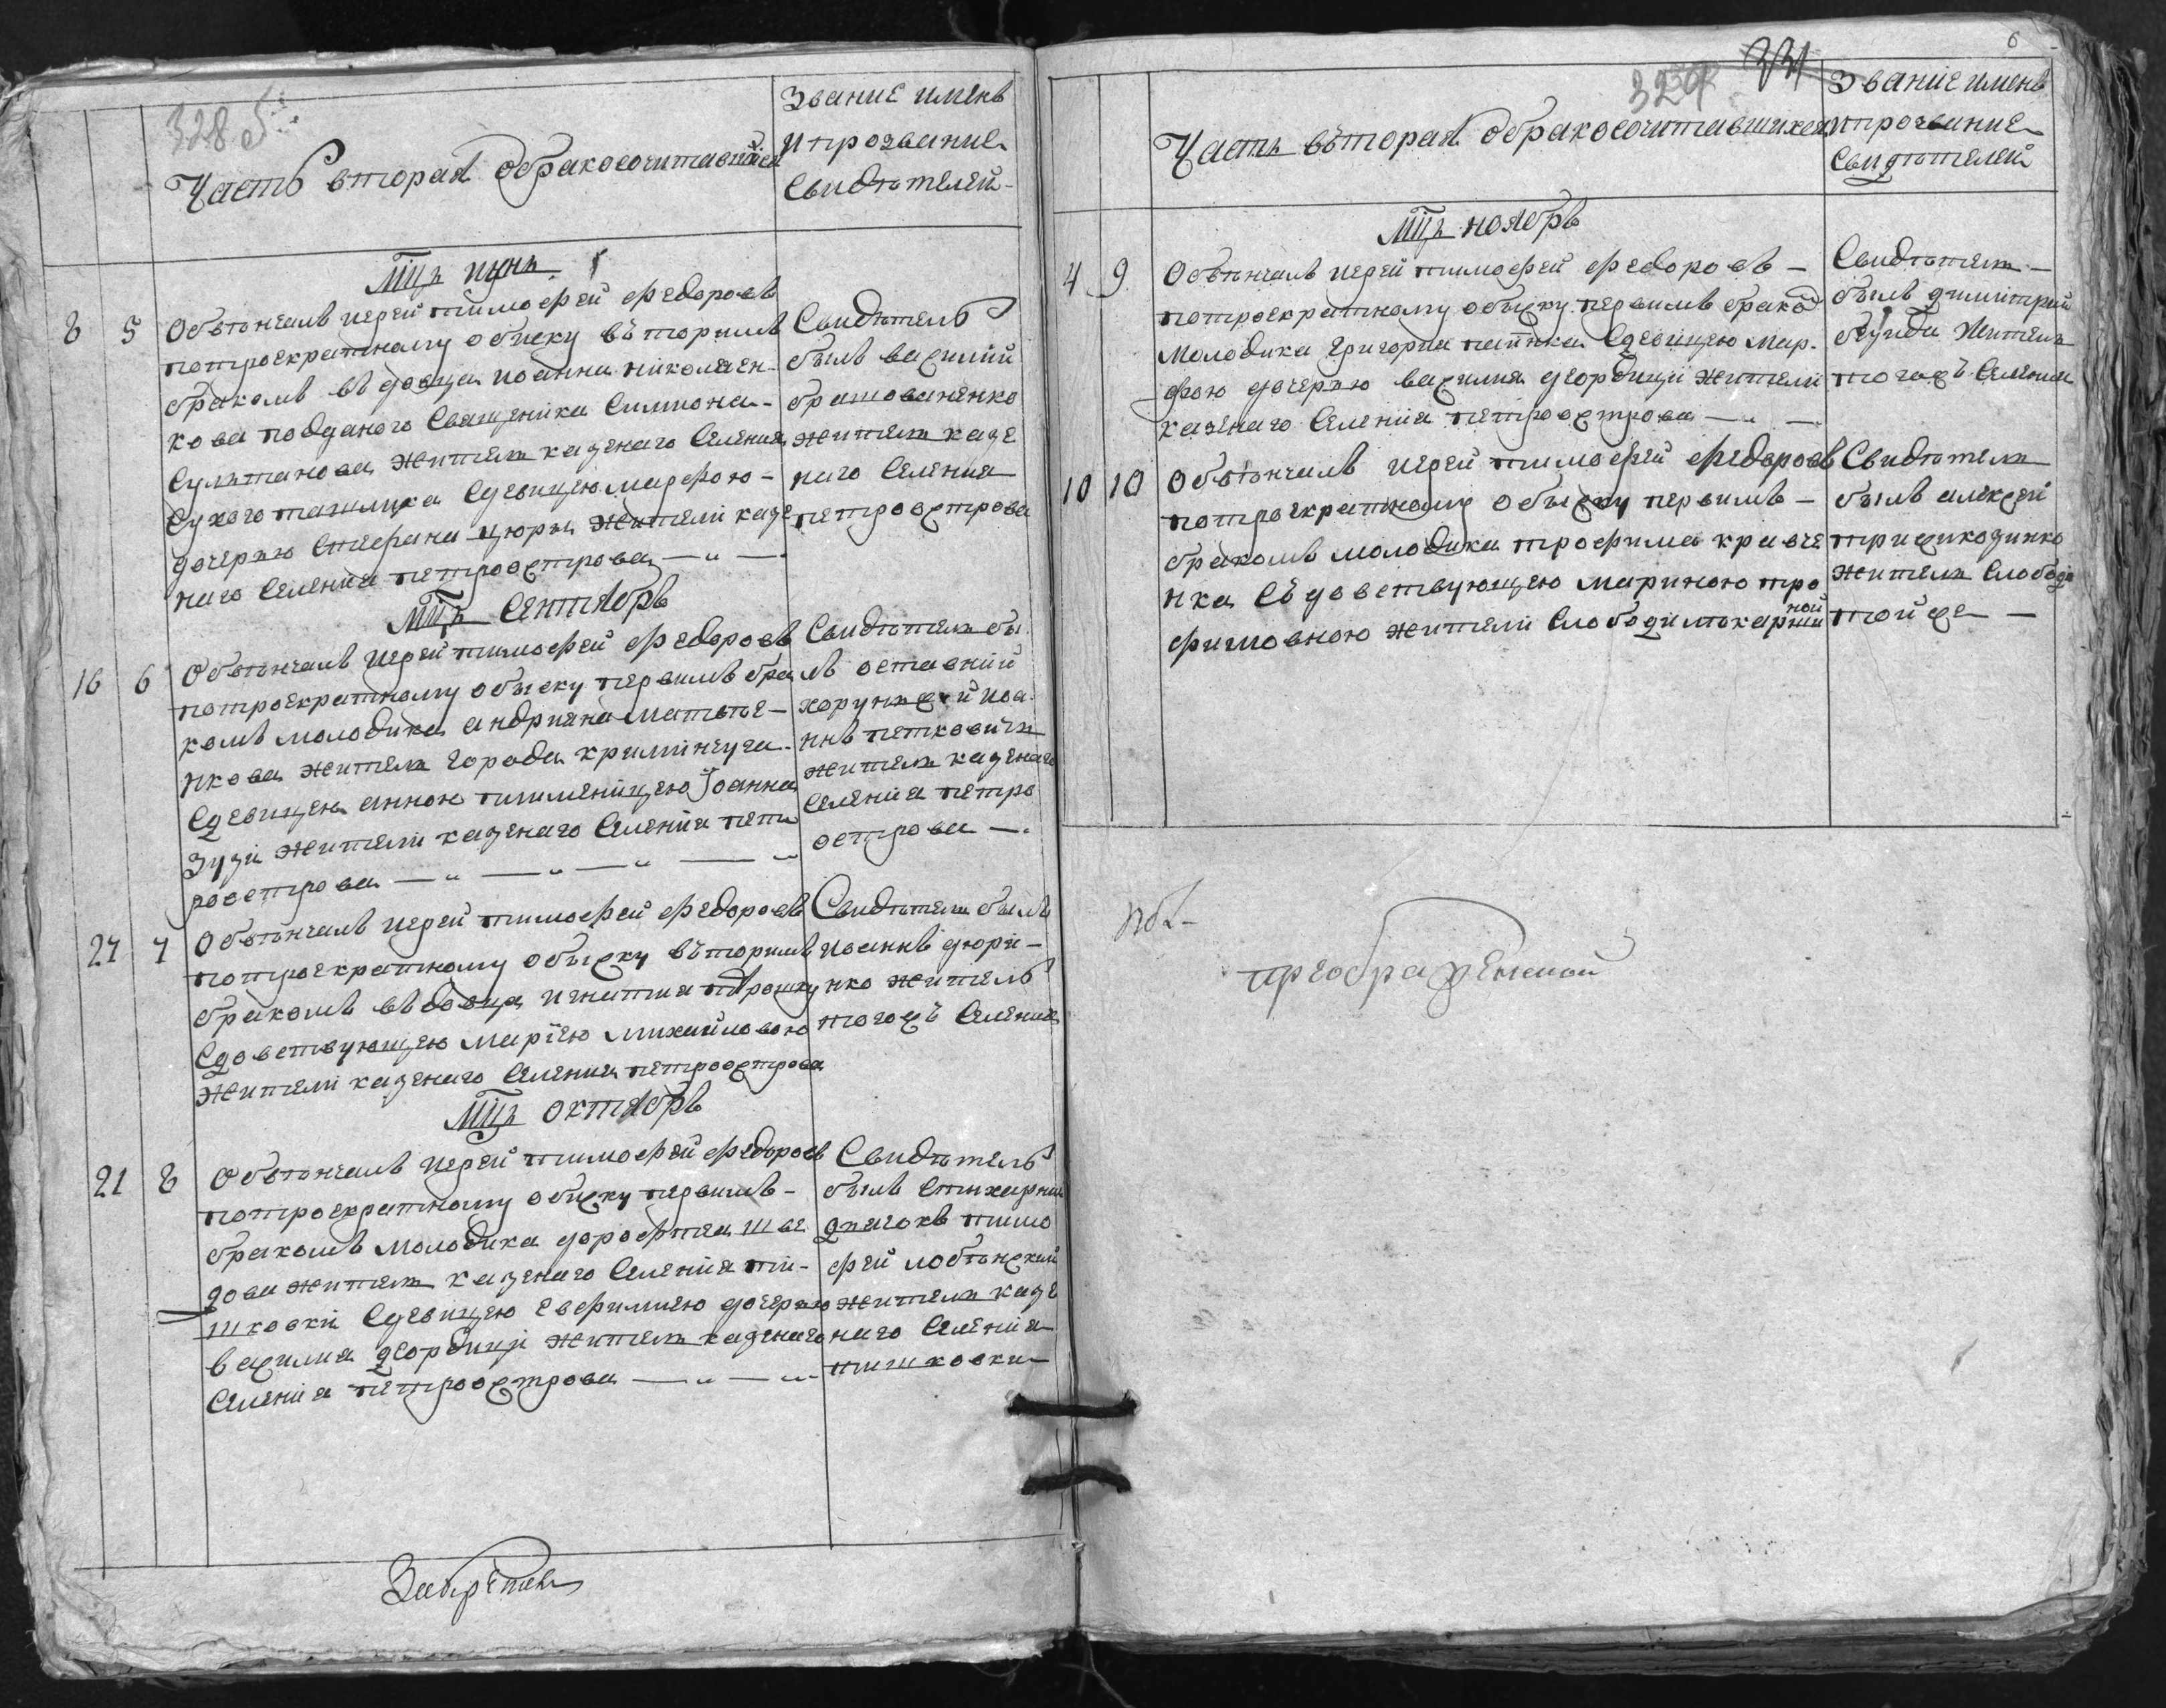 328 об:
Часть вторая обракосочитавшихся
Звание имянъ
и прозвание
Свидѣтелей
Мцъ июнь
8 5 Обвѣнчалъ иерей тимофей федоровъ
потроекратному обиску въторимъ
бракомъ въдовца иоанна николаен-
кова подданого Священика Симиона
Султанова жителя казенаго Селения
Сухого ташлика Сдевицею марфою
дочерью Стефана цюры жителя казе
наго Селения петроострова
Свидѣтель
былъ василий
братованенко
житель казе
наго Селения
петроострова
Мцъ Сентябрь
16 6 Обвѣнчалъ иерей тимофей федоровъ
потроекратному обыску первимъ бра
комъ молодика андрияна матвѣе-
нкова жителя города крименчуга
Сдевицею анною племеницею Иоанна
Зузи жителя казенаго Селения пет
роострова
Свидѣтель бы
лъ оставний
хорунжей иоа
ннъ петковичъ
житель казенаго
Селения петро
острова
27 7 Обвѣнчалъ иерей тимофей федоровъ
потроекратному обыску въторимъ
бракомъ въдовца игнатия
Сдовствующею мариею михайловою
жителя казенаго Селения петроострова
Свидѣтель былъ
иоаннъ дюри-
нко житель
тогожъ Селения
Мцъ октябрь
21 8 Обвѣнчалъ иерей тимофей федоровъ
потроекратному обиску первимъ
бракомъ молодика дорофтея шве
дова жителя казенаго Селения пи-
шковки Сдевицею евфимиею дочерью
василия георгици жителя казенаго
Селения петроострова
Свидѣтель
былъ Стихарний
дячокъ тимо
фей лобѣнский
житель казе
наго Селения
пишковки
6
329 331
Часть въторая обракосочитавшихся
Звание имянъ
и прозвание
Свидѣтелей
Мцъ ноябрь
4 9 Обвѣнчалъ иерей тимофей федоровъ
потроекратному обыску первимъ бракомъ
молодика григория Сдевицею мар-
фою дочерью василия георгици жителя
казенаго Селения петроострова
Свидѣтель
былъ димитрий
житель
тогожъ Селения
10 10 Обвѣнчалъ иерей тимофей федоровъ
потроекратному обыску первимъ
бракомъ молодика трофима кравче
нка Съдовствующею мариною тро
фимовною жителя Слободи
Свидѣтель
былъ алексей
житель Слободи
тойже
преображенской